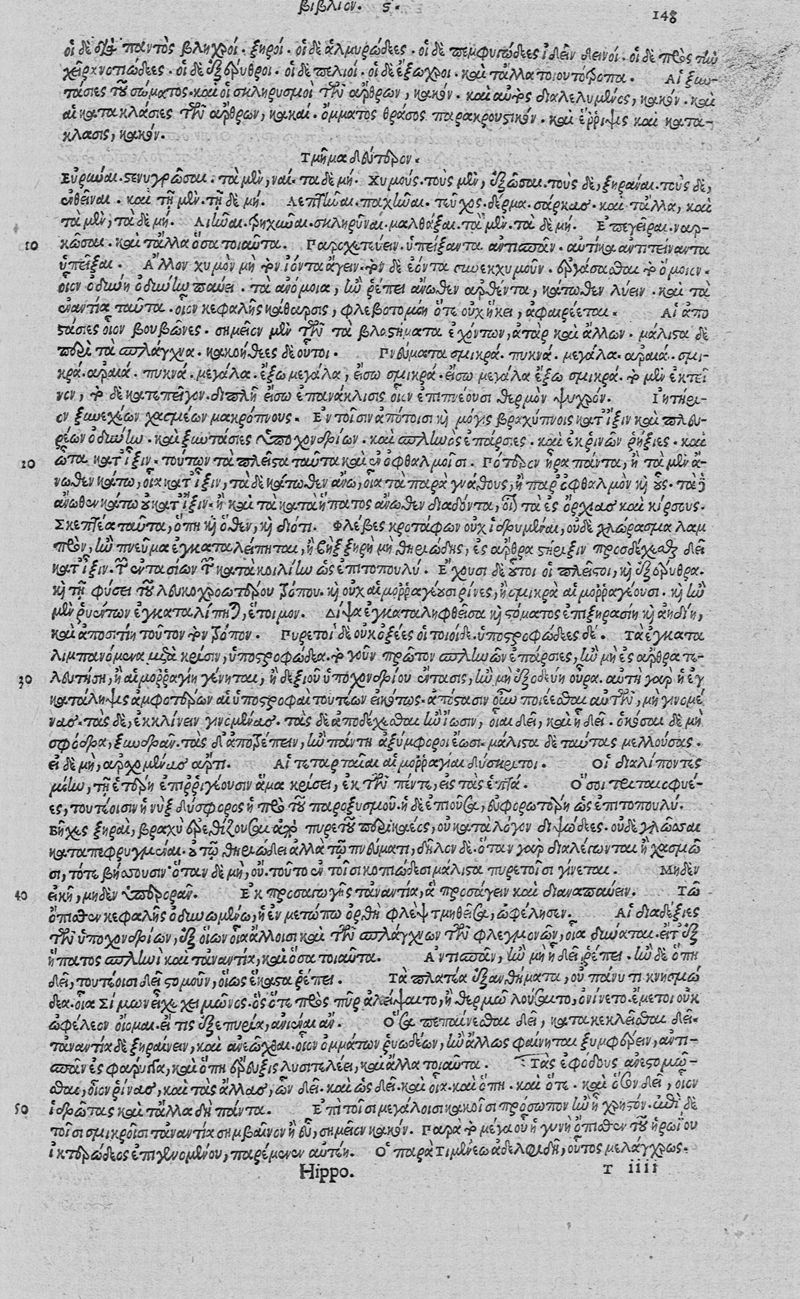 βιβλίον. ς.
148
οἱ δὲ διὰ παντὸς βληχροί. ξηροί. οἱ δὲ ἁλμυρώδεες. οἱ δὲ πεμφιγώδεες ἰδεῖν δεινοί. οἱ δὲ πρὸς τὴν
χεῖρα νοτιώδεες. οἱ δὲ ἐξέρυθροι. οἱ δὲ πελιοί. οἱ δὲ ἔξωχροι. καὶ τἄλλα τοιουτότροπα. Αἱ ξυν-
τάσιες τοῦ σώματος. καὶ οἱ σκληρυσμοὶ τῶν ἄρθρων, κακόν. καὶ αὐτὸς διαλελυμένος, κακόν. καὶ
αἱ κατακλάσιες τῶν ἄρθρων, κακαί. ὄμματος θράσος παρακρουστικόν. καὶ ἔρριψις καὶ κατά-
κλασις, κακόν.
Τμῆμα δεύτερον.
Εὐρῦναι. στενυγρῶσαι. τὰ μὲν, ναί. τὰ δὲ μή. Χυμοὺς. τοὺς μὲν, ἐξῶσαι. τοὺς δὲ, ξηρᾶναι. τοὺς δὲ,
ἐνθεῖναι. καὶ τῇ μὲν. τῇ δὲ μή. Λεπτῦναι. παχῦναι. τεῦχος. δέρμα. σάρκας. καὶ τἄλλα, καὶ
τὰ μὲν, τὰ δὲ μή. Λιῆναι. τρηχῦναι. σκληρῦναι. μαλθάξαι. τὰ μὲν. τὰ δὲ μή. Ἐπεγεῖραι. ναρ-
10 κῶσαι. καὶ τἄλλα ὅσα τοιαῦτα. Παροχετεύειν. ὑπείξαντα ἀντισπᾶν. αὐτίκα ἀντιτείναντα
ὑπεῖξαι. Ἄλλον χυμὸν μὴ τὸν ἰόντα ἄγειν. τὸν δὲ ἐόντα συνεκχυμοῦν. ἐργάσασθαι τὸ ὅμοιον.
οἷον ὀδύνη ὀδύνην παύει. τὰ ἀνόμοια, ἢν ῥέπει ἄνωθεν ἀρθέντα, κάτωθεν λύειν. καὶ τὰ
ἐναντία ταῦτα. οἷον κεφαλῆς κάθαρσις, φλεβοτομίη ὅτε οὐχ ἥκει, ἀφαιρέεται. Αἱ ἀπο
στάσιες οἷον βουβῶνες. σημεῖον μὲν τῶν τὰ βλαστήματα ἐχόντων, ἀτὰρ καὶ ἄλλων. μάλιστα δὲ
περὶ τὰ σπλάγχνα. κακοήθεες δὲ οὗτοι. Πνεύματα σμικρά. πυκνά. μεγάλα. ἀραιά. σμι-
κρά. ἀραιά. πυκνά. μεγάλα. ἔξω μεγάλα, εἴσω σμικρά. εἴσω μεγάλα ἔξω σμικρά. τὸ μὲν ἐκτεῖ
νον, τὸ δὲ κατεπεῖγον. διπλῆ εἴσω ἐπανάκλησις οἷον ἐπιπνέουσι θερμὸν ψυχρόν. Ἰητήρι-
ον ξυνεχέων χασμέων μακρόπνους. Ἐν τοῖσιν ἀπότοισι καὶ μόγις βραχύπνοις κατ' ἴξιν καὶ πλευ-
ρέων ὀδύνην. καὶ ξυντάσιες ὑποχονδρίων. καὶ σπληνὸς ἐπάρσιες. καὶ ἐκ ῥινῶν ῥήξιες. καὶ
20 ὦτα κατ' ἴξιν. τούτων τὰ πλεῖστα ταῦτα καὶ ἐν ὀφθαλμοῖσι. Πότερον ἦρα πάντα, ἢ τὰ μὲν ἄ-
νωθεν κάτω, οἷα κατ' ἴξιν, τὰ δὲ κάτωθεν ἄνω, οἷα τὰ παρὰ γνάθους, ἢ παρ' ὀφθαλμὸν καὶ οὖς. τὰ δ'
ἄνωθεν κάτω οὐ κατ' ἴξιν. ἢ καὶ τὰ κατὰ ἥπατος ἄνωθεν διαδόντα, οἷον τὰ ἐς ὄρχιας καὶ κίρσους.
Σκεπτέα ταῦτα, ὅπῃ καὶ ὅθεν, καὶ διότι. Φλέβες κροτάφων οὐχ ἱδρυμέναι, οὐδὲ χλώρασμα λαμ
πρὸν, ἢν πνεῦμα ἐγκαταλείπηται, ἢ βὴξ ξηρὴ μὴ θηριώδης, ἐς ἄρθρα στήριξιν προσδέχεσθαι δεῖ
κατ' ἴξιν. τῶν ἐντασίων τῶν κατὰ κοιλίην ὡς ἐπιτοπουλύ. Ἔχουσι δὲ οὗτοι οἱ πλεῖστοι, καὶ ἐξέρυθρα.
καὶ τῇ φύσει τοῦ λευκοχροωτέρου τρόπου. καὶ οὐχ αἱμορραγέουσι ῥῖνες, ἢ σμικρὰ αἱμορραγέουσι. καὶ ἢν
μὲν ῥυέντων ἐγκαταλίπῃ, ἕτοιμον. Δίψα ἐγκαταληφθεῖσα καὶ στόματος ἐπιξήρασίη καὶ ἀηδίη,
καὶ ἀποσιτίη τοῦτον τὸν τρόπον. Πυρετοὶ δὲ οὐκ ὀξέες οἱ τοιοίδε. ὑποστροφώδεες δέ. Τὰ ἐγκατα
λιμπανόμενα μετὰ κρίσιν, ὑποστροφώδεα. τὸ γοῦν πρῶτον σπληνῶν ἐπάρσιες, ἢν μὴ ἐς ἄρθρα τε-
30 λευτήσῃ, ἢ αἱμορραγίη γένηται, ἢ δεξιοῦ ὑποχονδρίου ἔντασις, ἢν μὴ ἐξοδεύῃ οὖρα. αὕτη γὰρ ἡ ἐγ
κατάληψις ἀμφοτέρων. αἱ ὑποστροφαὶ τουτέων εἰκότως. ἀπόστασιν οὖν ποιέεσθαι αὐτῶν, μὴ γινομέ
νας. τὰς δὲ, ἐκκλίνειν γινομένας. τὰς δὲ ἀποδέχεσθαι ἢν ἴωσιν, οἷαι δεῖ, καὶ ᾗ δεῖ. ὁκόσαι δὲ μὴ
σφόδρα, ξυνδρᾶν. τὰς δ' ἀποτρέπειν, ἢν πάντη ἀξύμφοροι ἔωσι. μάλιστα δὲ ταύτας μελλούσας.
εἰ δὲ μὴ, ἀρχομένας ἄρτι. Αἱ τεταρταῖαι αἱμορραγίαι δύσκριτοι. Οἱ διαλίποντες
μίην, τῇ ἑτέρῃ ἐπιρριγέουσιν ἅμα κρίσει, ἐκ τῶν πέντε, εἰς τὰς ἑπτά. Ὅσοι τριταιοφυέ-
ες, τουτέοισιν ἡ νὺξ δύσφορος ἡ πρὸ τοῦ παροξυσμοῦ. ἡ δὲ ἐπιοῦσα, εὐφορωτέρη ὡς ἐπιτοπουλύ.
Βῆχες ξηραὶ, βραχὺ ἐρεθίζουσαι ἀπὸ πυρετοῦ περικαέος, οὐ κατὰ λόγον διψώδεες. οὐδὲ γλῶσσαι
καταπεφρυγμέναι. οὐ τῷ θηριώδει ἀλλὰ τῷ πνεύματι, δῆλον δέ. ὅταν γὰρ διαλέγωνται ἢ χασμῶ
σι, τότε βήσσουσιν. ὅταν δὲ μὴ, οὔ. τοῦτο ἐν τοῖσι κοπιώδεσι μάλιστα πυρετοῖσι γίνεται. Μηδὲν
40 εἰκῆ, μηδὲν ὑπερορᾶν. Ἐκ προσαγωγῆς τἀναντία, ἃ προσάγειν καὶ διαναπαύειν. Τῷ
ὄπισθεν κεφαλῆς ὀδυνωμένῳ, ἡ ἐν μετώπῳ ὀρθὴ φλὲψ τμηθεῖσα, ὠφέλησεν. Αἱ διαδέξιες
τῶν ὑποχονδρίων, ἐξ οἵων οἷα ἄλλοισι καὶ τῶν σπλάγχνων τῶν φλεγμονῶν, οἷα δύναται. εἴτ' ἐξ
ἥπατος σπληνὶ καὶ τἀναντία, καὶ ὅσα τοιαῦτα. Ἀντισπᾶν, ἢν μὴ ᾗ δεῖ ῥέπει. ἢν δὲ ὅπῃ
δεῖ, τουτέοισι δεῖ στομοῦν, οἵως ἕκαστα ῥέπει. Τὰ πλατέα ἐξανθήματα, οὐ πάνυ τι κνησμώ
δεα. οἷα Σίμων εἶχε χειμῶνος. ὃς ὅτε πρὸς πῦρ ἀλείψαιτο, ἢ θερμῷ λούσαιτο, ὀνίνετο. ἔμετοι οὐκ
ὠφέλεον οἴομαι. εἴ τις ἐξεπυρία, ἀνιέναι ἄν. Ὅσα πεπαίνεσθαι δεῖ, κατακεκλεῖσθαι δεῖ.
τἀναντία δὲ ξηραίνειν, καὶ ἀνεῷχθαι. οἷον ὀμμάτων ῥυωδέων, ἢν ἄλλως φαίνηται ξυμφέρειν, ἀντι-
σπᾶν ἐς φάρυγγα, καὶ ὅπη ἔρευξις λυσιτελέει, καὶ ἄλλα τοιαῦτα. Τὰς ἐφόδους ἀνεστομῶ-
σθαι, οἷον ῥῖνας, καὶ τὰς ἄλλας, ὧν δεῖ. καὶ ὡς δεῖ. καὶ οἷα. καὶ ὅπη. καὶ ὅτε. καὶ ὅσον δεῖ, οἷον
50 ἱδρῶτας καὶ τἄλλα δὴ πάντα. Ἐπὶ τοῖσι μεγάλοισι κακοῖσι πρόσωπον ἢν ᾖ χρηστόν. ἐπὶ δὲ
τοῖσι σμικροῖσι τἀναντία σημβαῖνον ἢ εὖ, σημεῖον κακόν. Παρὰ τὸ μέγα οὗ ἡ γυνὴ ὄπισθεν τοῦ ἡρῴου
ἰκτερώδεος ἐπιγενομένου, παρέμεινεν αὐτέῃ. Ὁ παρὰ Τιμένεω ἀδελφιδῇ, οὗτος μελάγχρως.
Hippo. T iiii